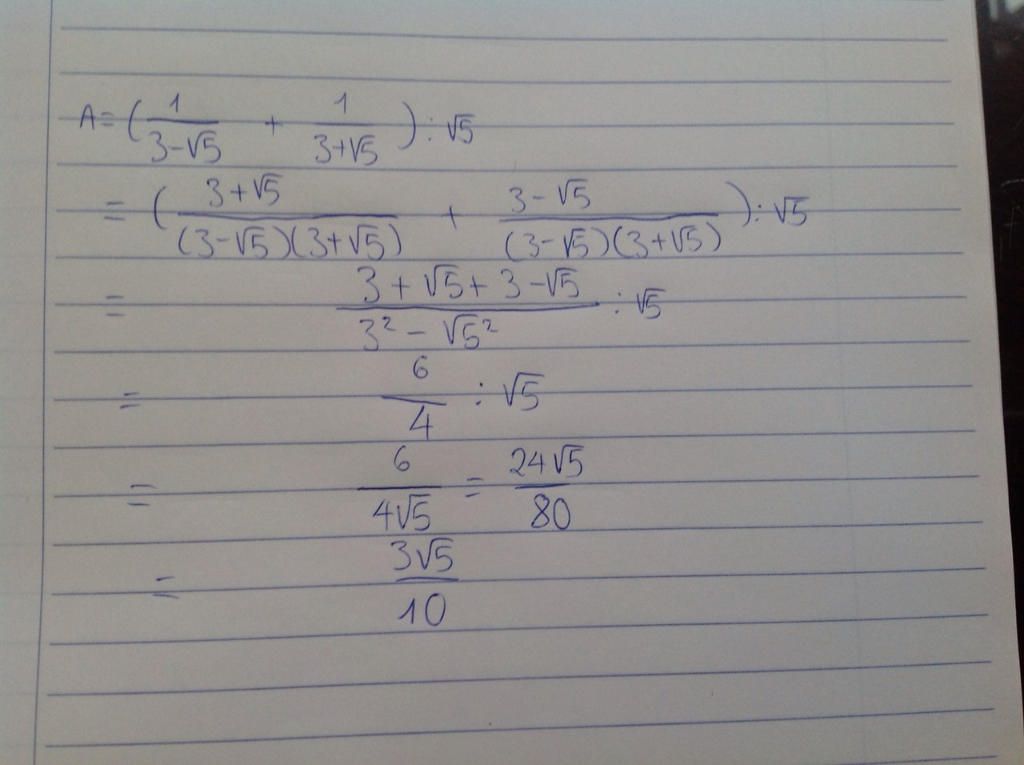 A = (1/(3-√5) + 1/(3+√5)) : √5
= ((3+√5)/((3-√5)(3+√5)) + (3-√5)/((3-√5)(3+√5))) : √5
= (3+√5+3-√5)/(3² - √5²) : √5
= 6/4 : √5
= 6/(4√5) = 24√5/80
= 3√5/10